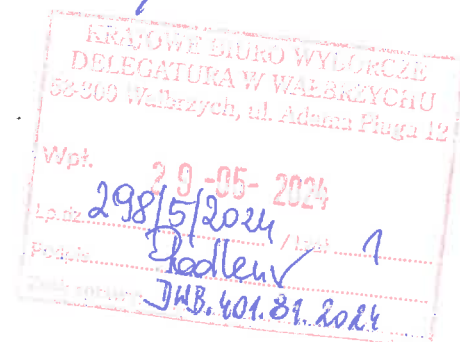 KRAJOWE BIURO WYBORCZE
DELEGATURA W WAŁBRZYCHU
58-300 Wałbrzych, ul. Adama Pługa 12
Wpł. 29 -05- 2024
L.p.dz. 298/5/2024 / 1
Podpis
DWB.401.81.2024